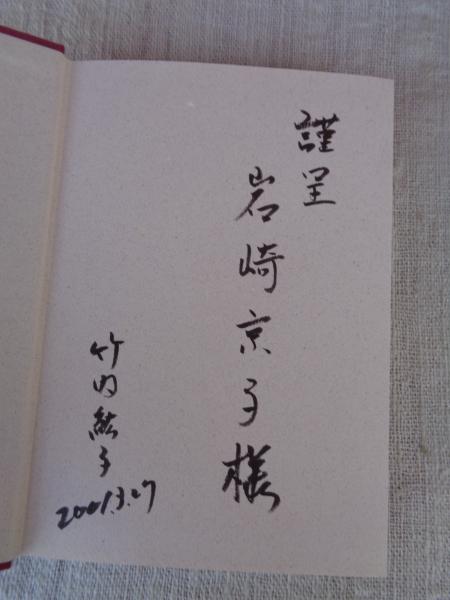 謹呈
岩崎京子様
竹内紘子
2001.3.27